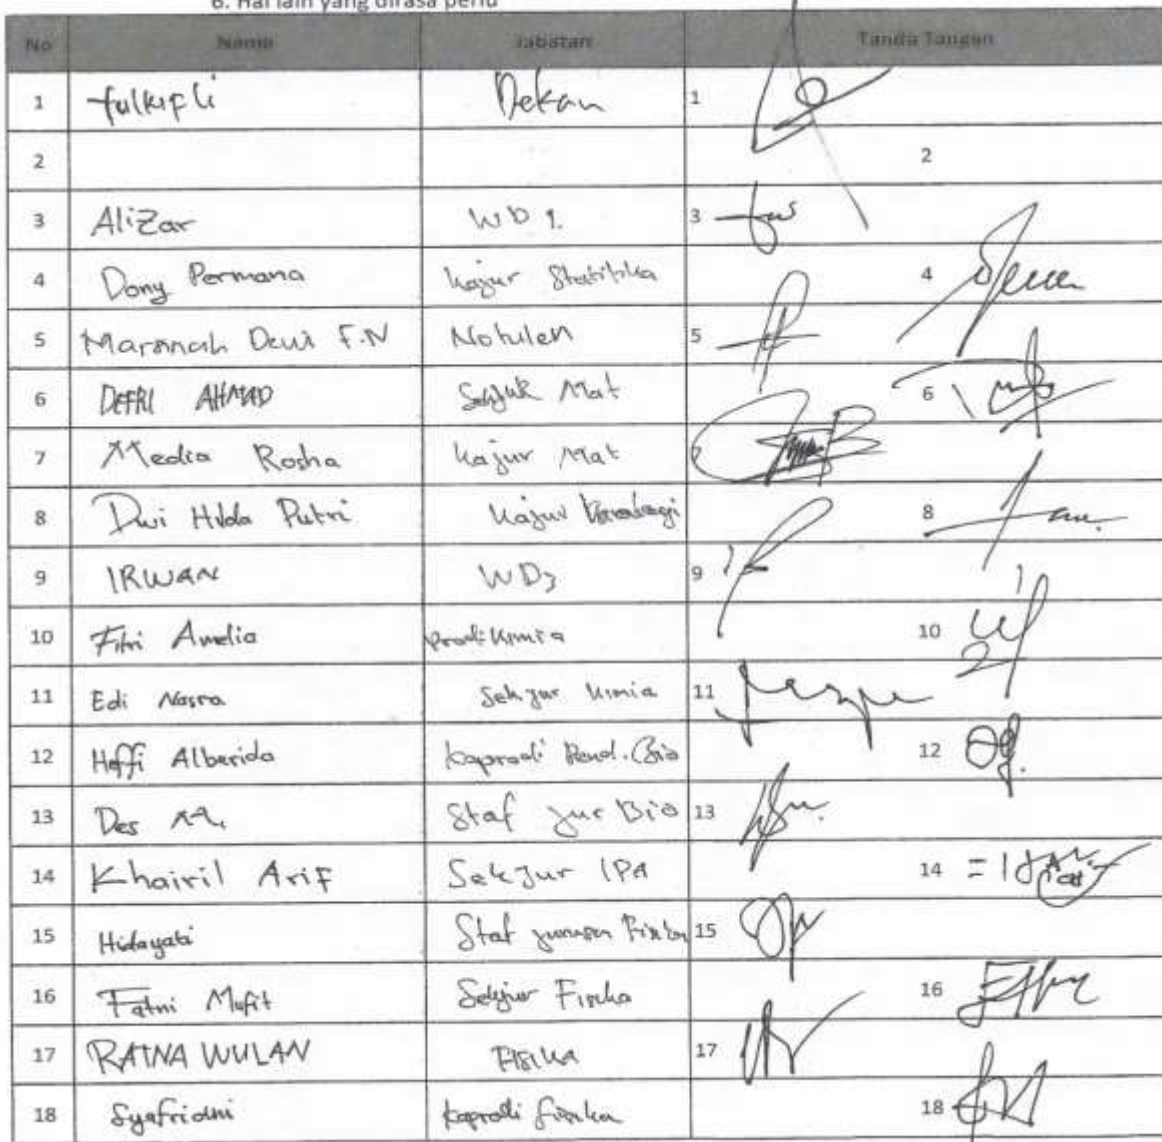 6. Hal lain yang dirasa perlu
No Nama Jabatan Tanda Tangan
1 fulkifli Dekan 1
2 2
3 Alizar WD 1. 3
4 Dony Permana Kajur Statitika 4
5 Dewi F.N Notulen 5
6 DEFRI AHMAD Mat 6
7 Media Rosha Kajur Mat
8 Dwi Hilda Putri Kajur 8
9 IRWAN WD3 9
10 Fitri Amelia prodi Kimia 10
11 Edi Nasra Sekjur Kimia 11
12 Heffi Alberida Kaprodi Pend. Bio 12
13 Des M, Staf Jur Bio 13
14 Khairil Arif Sekjur IPA 14
15 Hidayati Staf jurusan 15
16 Fatni Mufit Sekjur Fisika 16
17 RATNA WULAN FISIKA 17
18 Syafriani Kaprodi fisika 18